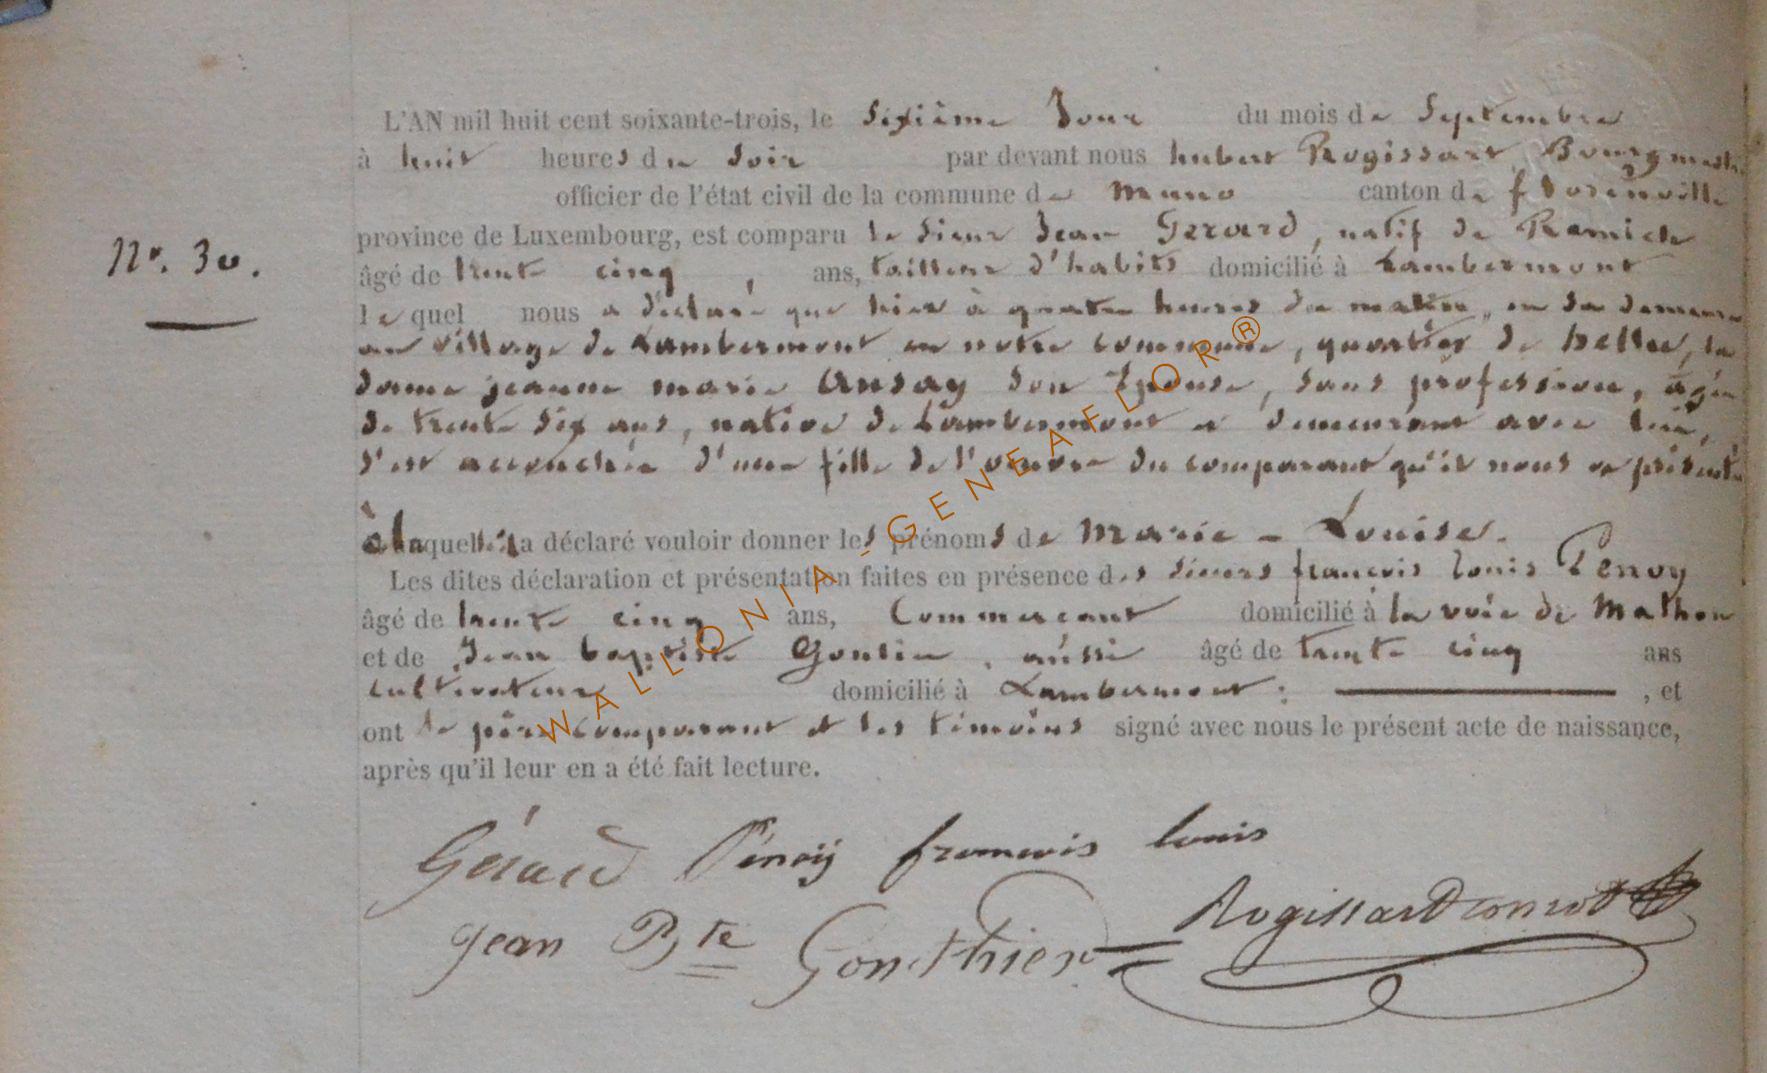 L'AN mil huit cent soixante-trois, le sixième Jour du mois de Septembre
à huit heures du soir par devant nous hubert Rogissart Bourgmestre
officier de l'état civil de la commune de Muno canton de florenville
province de Luxembourg, est comparu le sieur Jean Gerard, natif de Remich
N°. 30.
âgé de trente cinq, ans, tailleur d'habits domicilié à Lambermont
lequel nous a déclaré que hier à quatre heures du matin, en sa demeure
au village de Lambermont en notre commune, quartier de hellee, la
dame jeanne marie Ansay son Epouse, sans profession, agée
de trente six ans, native de Lambermont et demeurant avec lui,
s'est accouchée d'une fille de l'oeuvre du comparant qu'il nous a présenté
à laquelle il a déclaré vouloir donner les prénoms de Marie - Louise.
Les dites déclaration et présentation faites en présence des sieurs françois louis Penoy
âgé de trente cinq ans, Commercant domicilié à la voie de Mathon
et de Jean baptiste Gontier, aussi âgé de trente cinq ans
cultivateur domicilié à Lambermont; , et
ont le père comparant et les témoins signé avec nous le présent acte de naissance,
après qu'il leur en a été fait lecture.
Gérard Penoy francois louis
Jean Bte Gonthier Rogissart
WALLONIA - GENEAFLOR®